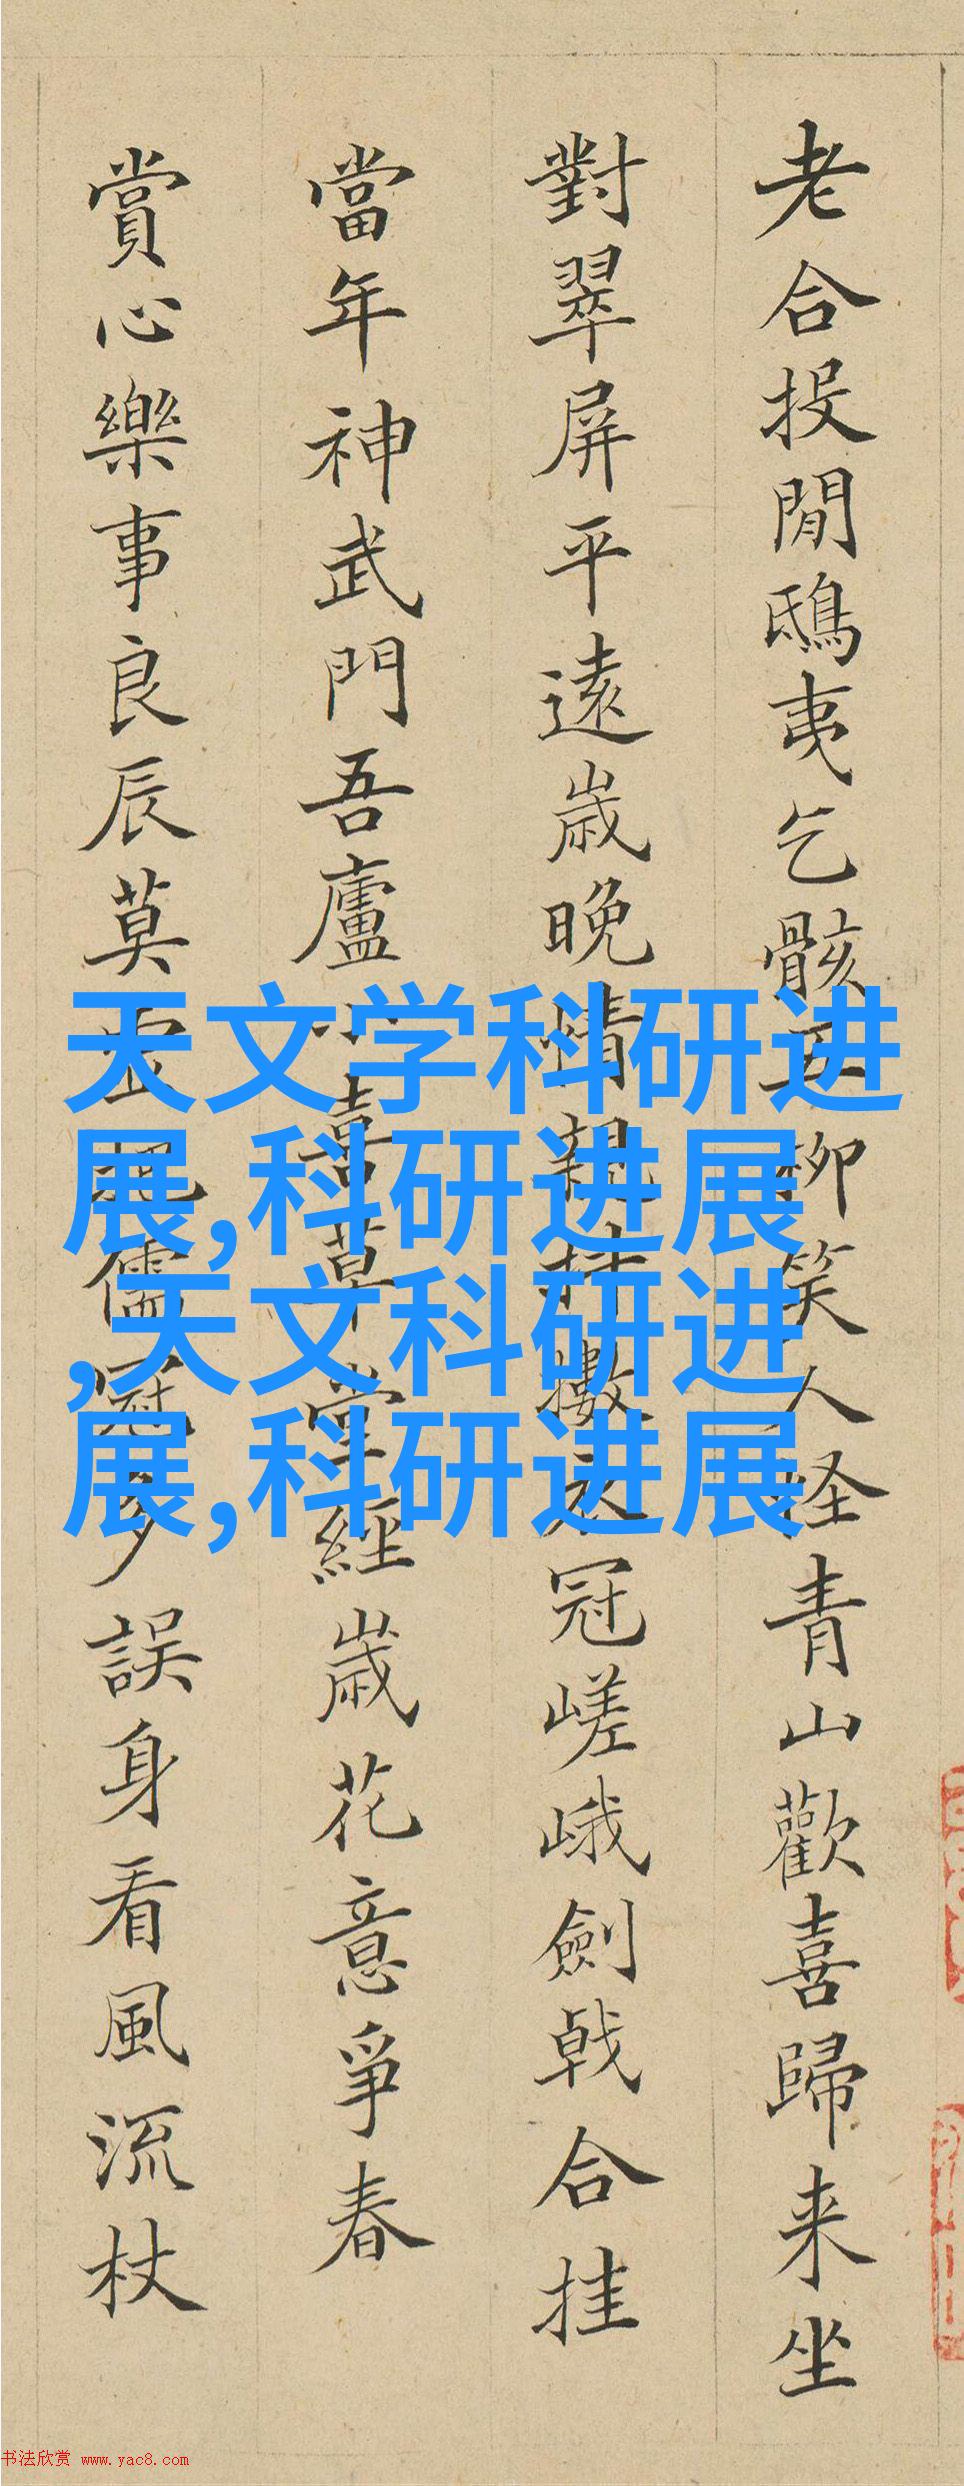 老合投閒鴟夷乞骸五柳笑人怪青山歡喜歸来坐
對翠屏平遠歲晚情親抖擻衣冠嵯峨劍戟合挂
當年神武門吾廬小喜草堂經歲花意爭春
賞心樂事良辰莫把儒冠多誤身看風流杖
天文学科研进
展,科研进展
,天文科研进
展,科研进展
书法欣赏 www.yac8.com